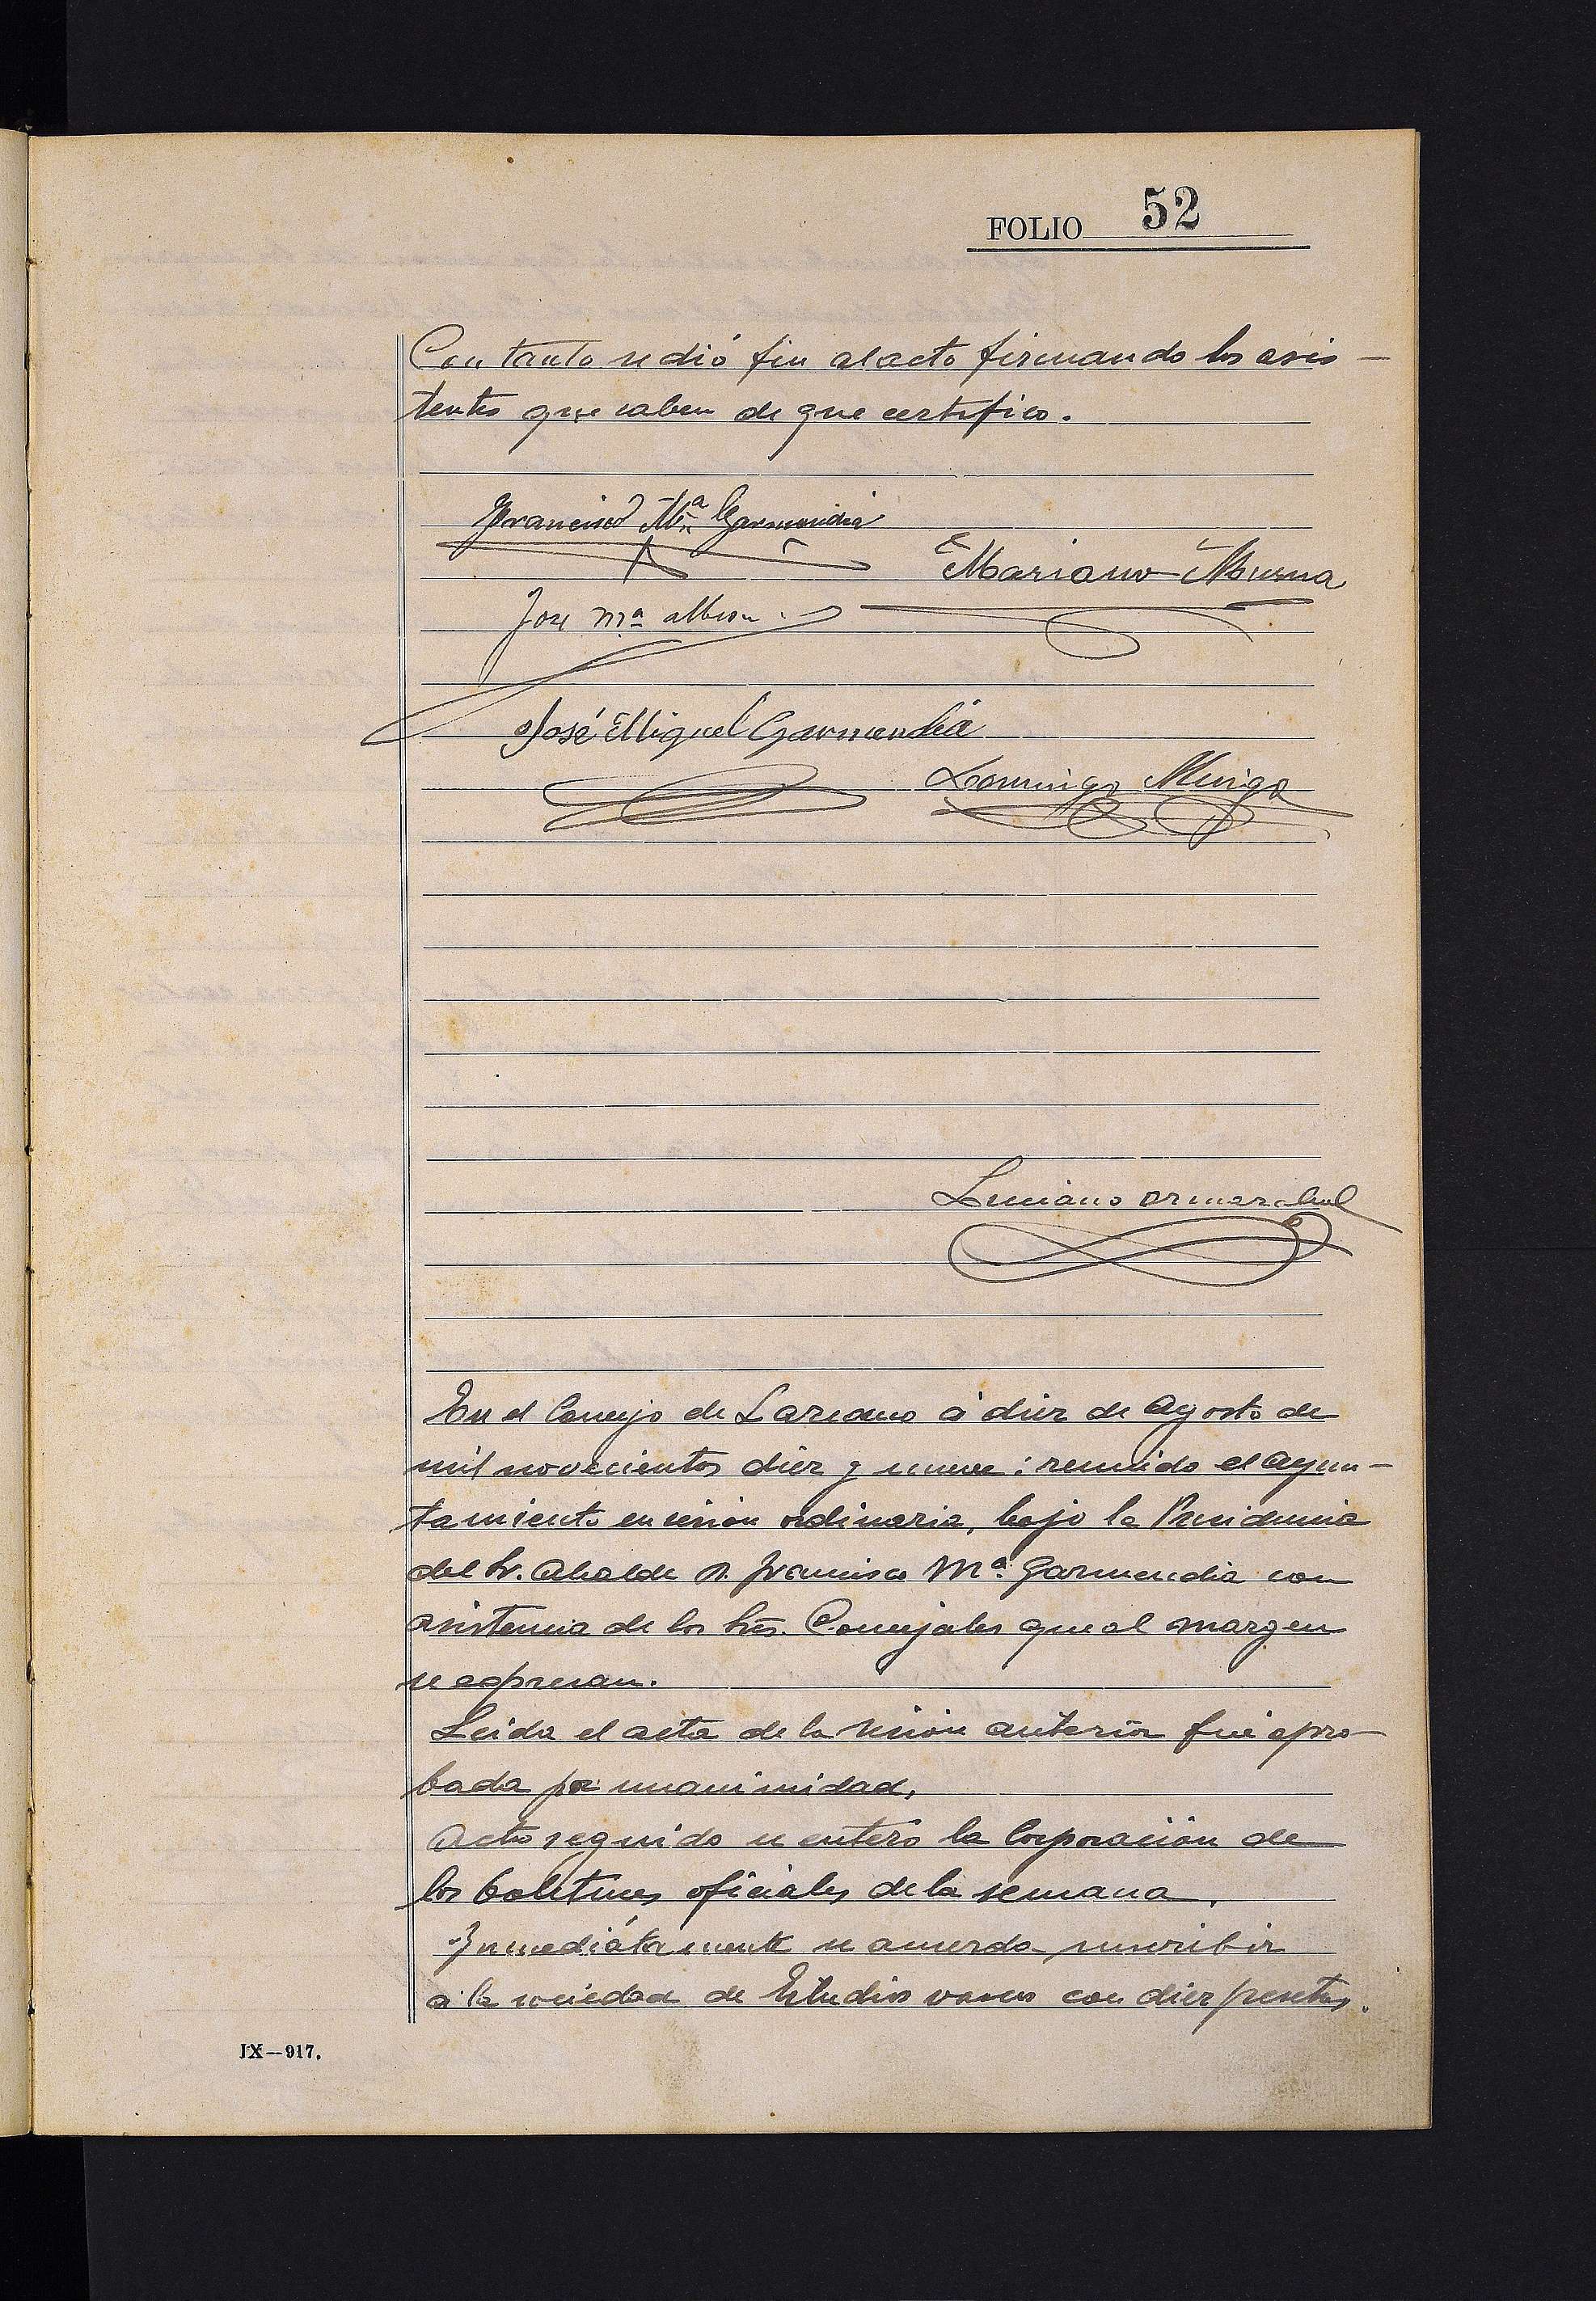 FOLIO 52
Con tanto se dió fin al acto firmando los asis-
tentes que saben de que certifico.
Francisco Mª Garmendia
Mariano Murua
Jose Mª
José Miguel Garmendia
Domingo
Luciano
En el Concejo de Lazcano á diez de Agosto de
mil novecientos diez y nueve: reunido el Ayun-
tamiento en sesión ordinaria, bajo la Presidencia
del Sr. Alcalde D. Francisco Mª Garmendia con
asistencia de los Sres. Concejales que al margen
se expresan.
Leida el acta de la sesión anterior fué apro-
bada por unanimidad,
Acto seguido se enteró la Corporación de
los boletines oficiales de la semana.
Inmediátamente se acuerda suscribir
a la sociedad de Estudios vascos con diez pesetas.
IX—917.